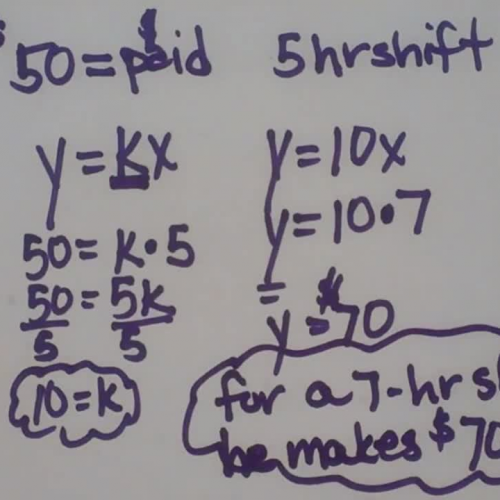 $50 = paid
5hr shift
y = kx
50 = k • 5
50/5 = 5k/5
10 = k
y = 10x
y = 10 • 7
y = $70
for a 7-hr
he makes $70